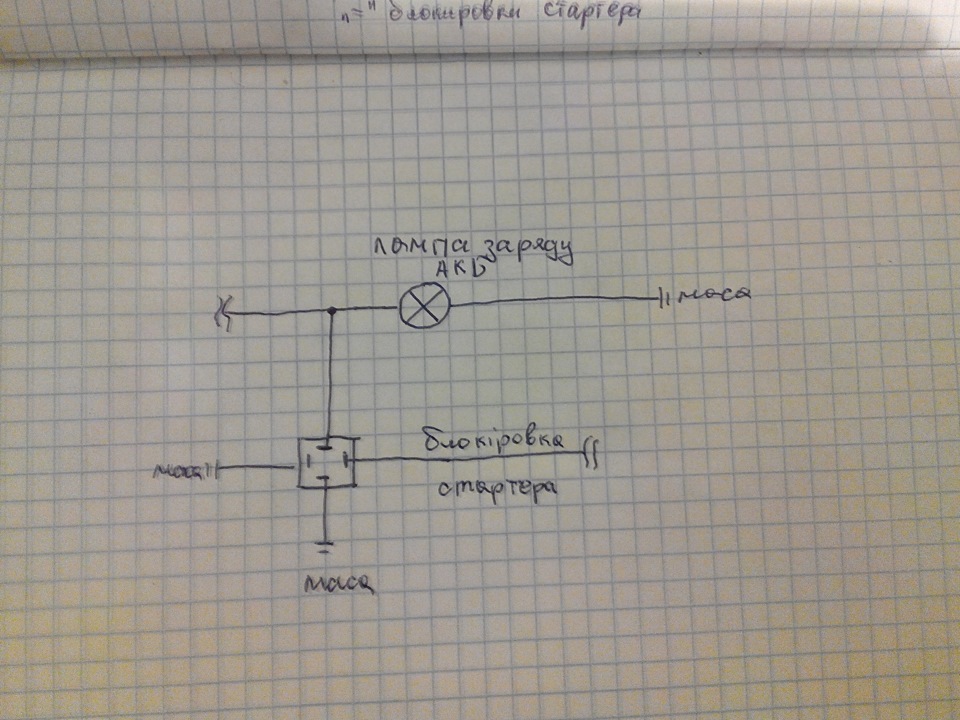 "=" блокировки стартера
лампа заряду
АКБ
маса
блокіровка
маса
стартера
маса